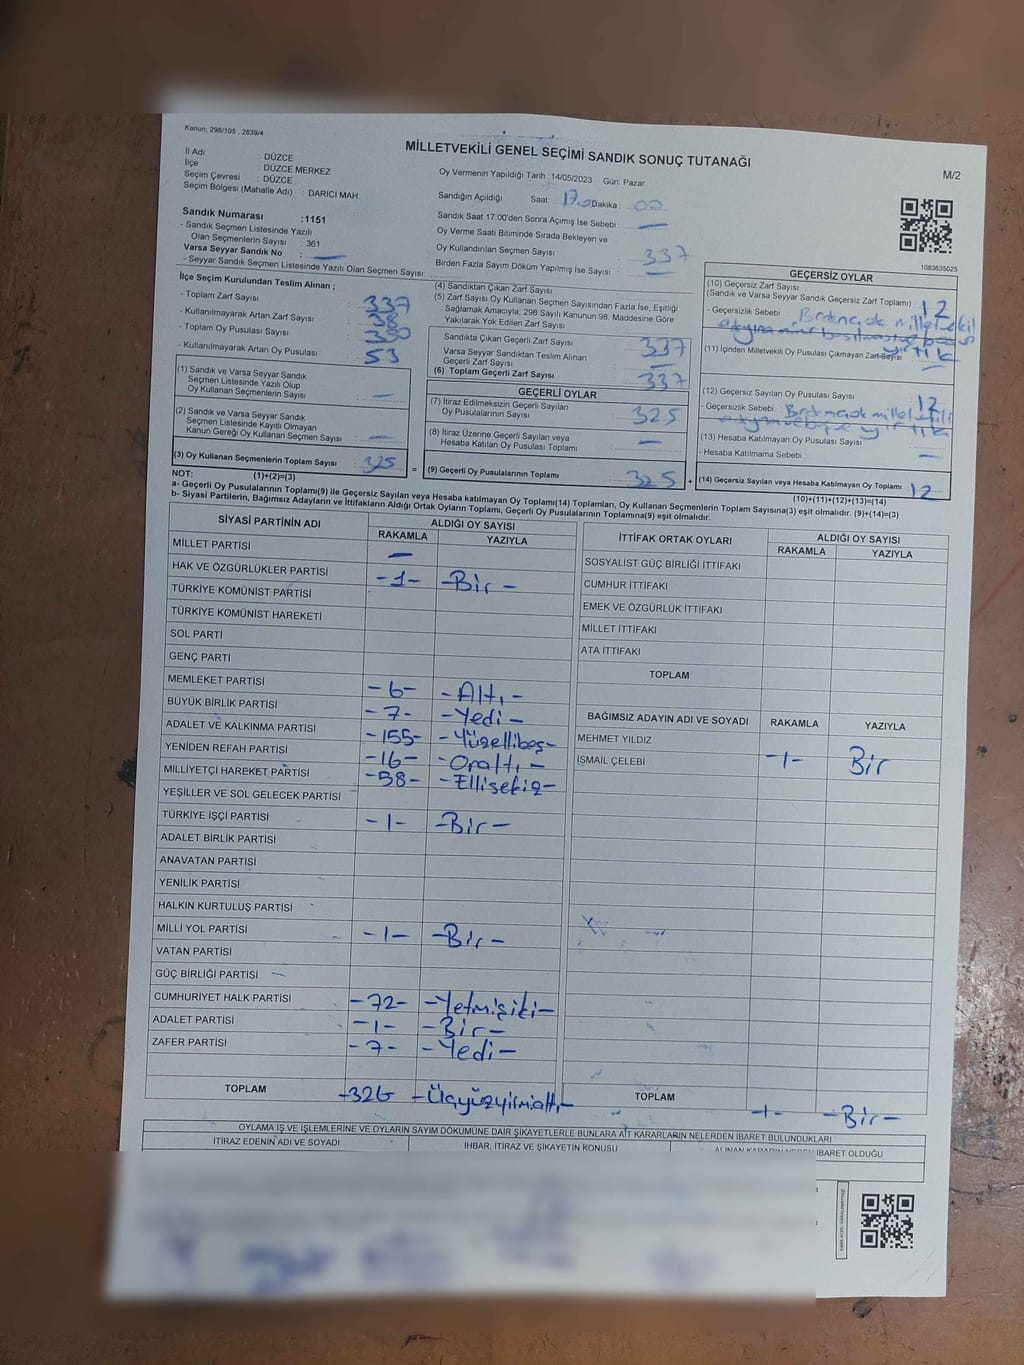 Kanun; 298/105 , 2839/4
MİLLETVEKİLİ GENEL SEÇİMİ SANDIK SONUÇ TUTANAĞI
M/2
İl Adı : DÜZCE
İlçe : DÜZCE MERKEZ
Seçim Çevresi : DÜZCE
Seçim Bölgesi (Mahalle Adı) : DARICI MAH.
Oy Vermenin Yapıldığı Tarih : 14/05/2023 Gün: Pazar
Sandığın Açıldığı Saat 17.0 Dakika 00
Sandık Saat 17:00'den Sonra Açımış İse Sebebi : —
Oy Verme Saati Bitiminde Sırada Bekleyen ve
Oy Kullandırılan Seçmen Sayısı 337
Birden Fazla Sayım Döküm Yapılmış İse Sayısı —
1083635025
Sandık Numarası :1151
- Sandık Seçmen Listesinde Yazılı
Olan Seçmenlerin Sayısı : 361
Varsa Seyyar Sandık No : —
- Seyyar Sandık Seçmen Listesinde Yazılı Olan Seçmen Sayısı:
İlçe Seçim Kurulundan Teslim Alınan ;
- Toplam Zarf Sayısı 337
- Kullanılmayarak Artan Zarf Sayısı
- Toplam Oy Pusulası Sayısı
- Kullanılmayarak Artan Oy Pusulası 53
(1) Sandık ve Varsa Seyyar Sandık
Seçmen Listesinde Yazılı Olup
Oy Kullanan Seçmenlerin Sayısı —
(2) Sandık ve Varsa Seyyar Sandık
Seçmen Listesinde Kayıtlı Olmayan
Kanun Gereği Oy Kullanan Seçmen Sayısı —
(3) Oy Kullanan Seçmenlerin Toplam Sayısı 325 =
(4) Sandıktan Çıkan Zarf Sayısı
(5) Zarf Sayısı Oy Kullanan Seçmen Sayısından Fazla İse, Eşitliği
Sağlamak Amacıyla, 298 Sayılı Kanunun 98. Maddesine Göre
Yakılarak Yok Edilen Zarf Sayısı
Sandıkta Çıkan Geçerli Zarf Sayısı 337
Varsa Seyyar Sandıktan Teslim Alınan
Geçerli Zarf Sayısı —
(6) Toplam Geçerli Zarf Sayısı 337
GEÇERLİ OYLAR
(7) İtiraz Edilmeksizin Geçerli Sayılan
Oy Pusulalarının Sayısı 325
(8) İtiraz Üzerine Geçerli Sayılan veya
Hesaba Katılan Oy Pusulası Toplamı —
(9) Geçerli Oy Pusulalarının Toplamı 325 +
GEÇERSİZ OYLAR
(10) Geçersiz Zarf Sayısı
(Sandık ve Varsa Seyyar Sandık Geçersiz Zarf Toplamı) 12
- Geçersizlik Sebebi :
(11) İçinden Milletvekili Oy Pusulası Çıkmayan Zarf Sayısı
(12) Geçersiz Sayılan Oy Pusulası Sayısı 12
- Geçersizlik Sebebi :
(13) Hesaba Katılmayan Oy Pusulası Sayısı
- Hesaba Katılmama Sebebi : —
(14) Geçersiz Sayılan veya Hesaba Katılmayan Oy Toplamı 12
NOT: (1)+(2)=(3)
(10)+(11)+(12)+(13)=(14)
a- Geçerli Oy Pusulalarının Toplamı(9) ile Geçersiz Sayılan veya Hesaba katılmayan Oy Toplamı(14) Toplamları, Oy Kullanan Seçmenlerin Toplam Sayısına(3) eşit olmalıdır. (9)+(14)=(3)
b- Siyasi Partilerin, Bağımsız Adayların ve İttifakların Aldığı Ortak Oyların Toplamı, Geçerli Oy Pusulalarının Toplamına(9) eşit olmalıdır.
SİYASİ PARTİNİN ADI ALDIĞI OY SAYISI
RAKAMLA YAZIYLA
MİLLET PARTİSİ —
HAK VE ÖZGÜRLÜKLER PARTİSİ -1- -Bir-
TÜRKİYE KOMÜNİST PARTİSİ
TÜRKİYE KOMÜNİST HAREKETİ
SOL PARTİ
GENÇ PARTİ
MEMLEKET PARTİSİ -6- -Altı-
BÜYÜK BİRLİK PARTİSİ -7- -Yedi-
ADALET VE KALKINMA PARTİSİ -155- -Yüzellibeş-
YENİDEN REFAH PARTİSİ -16- -Onaltı-
MİLLİYETÇİ HAREKET PARTİSİ -58- -Ellisekiz-
YEŞİLLER VE SOL GELECEK PARTİSİ
TÜRKİYE İŞÇİ PARTİSİ -1- -Bir-
ADALET BİRLİK PARTİSİ
ANAVATAN PARTİSİ
YENİLİK PARTİSİ
HALKIN KURTULUŞ PARTİSİ
MİLLİ YOL PARTİSİ -1- -Bir-
VATAN PARTİSİ
GÜÇ BİRLİĞİ PARTİSİ
CUMHURİYET HALK PARTİSİ -72- -Yetmişiki-
ADALET PARTİSİ -1- -Bir-
ZAFER PARTİSİ -7- -Yedi-
TOPLAM -326 -Üçyüzyirmialtı-
İTTİFAK ORTAK OYLARI ALDIĞI OY SAYISI
RAKAMLA YAZIYLA
SOSYALİST GÜÇ BİRLİĞİ İTTİFAKI
CUMHUR İTTİFAKI
EMEK VE ÖZGÜRLÜK İTTİFAKI
MİLLET İTTİFAKI
ATA İTTİFAKI
TOPLAM
BAĞIMSIZ ADAYIN ADI VE SOYADI RAKAMLA YAZIYLA
MEHMET YILDIZ
İSMAİL ÇELEBİ -1- Bir
TOPLAM -1- -Bir-
OYLAMA İŞ VE İŞLEMLERİNE VE OYLARIN SAYIM DÖKÜMÜNE DAİR ŞİKAYETLERLE BUNLARA AİT KARARLARIN NELERDEN İBARET BULUNDUKLARI
İTİRAZ EDENİN ADI VE SOYADI İHBAR, İTİRAZ VE ŞİKAYETİN KONUSU ALINAN KARARIN NEDEN İBARET OLDUĞU